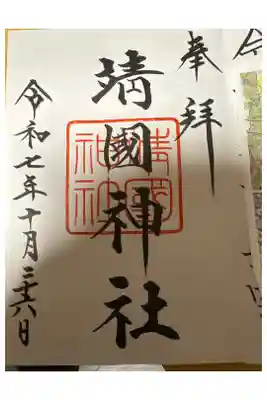 奉拝
靖國神社
靖國
神社
令和七年十月二十六日